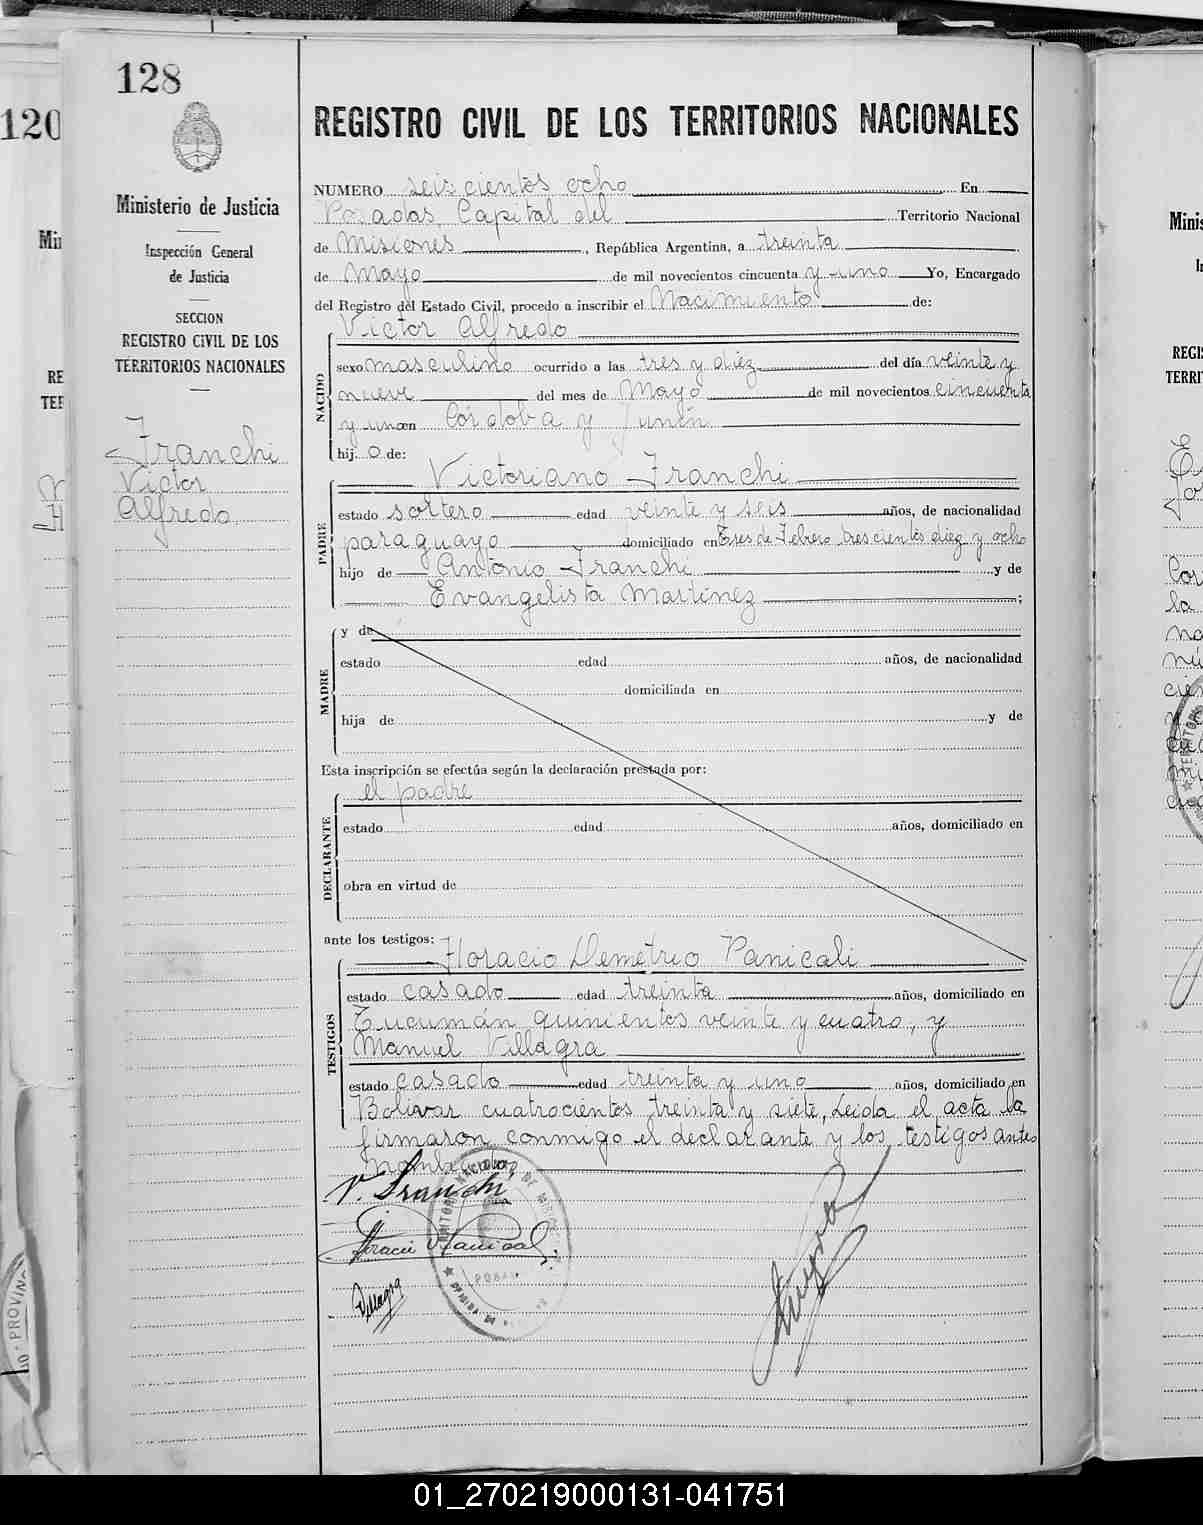 128
120
Ministerio de Justicia
Inspección General
de Justicia
SECCION
REGISTRO CIVIL DE LOS
TERRITORIOS NACIONALES
Franchi
Victor
Alfredo
REGISTRO CIVIL DE LOS TERRITORIOS NACIONALES
NUMERO seiscientos ocho En
Posadas, Capital del Territorio Nacional
de Misiones, República Argentina, a treinta
de Mayo de mil novecientos cincuenta y uno Yo, Encargado
del Registro del Estado Civil, procedo a inscribir el Nacimiento de:
NACIDO
Victor Alfredo
sexo masculino ocurrido a las tres y diez del día veinte y
nueve del mes de Mayo de mil novecientos cincuenta
y uno en Córdoba y Junín
hij o de:
PADRE
Victoriano Franchi
estado soltero edad veinte y seis años, de nacionalidad
paraguayo domiciliado en Tres de Febrero trescientos diez y ocho
hijo de Antonio Franchi y de
Evangelista Martinez ;
MADRE
y de
estado edad años, de nacionalidad
domiciliada en
hija de y de
Esta inscripción se efectúa según la declaración prestada por:
DECLARANTE
el padre
estado edad años, domiciliado en
obra en virtud de
ante los testigos:
TESTIGOS
Horacio Demetrio Panicali
estado casado edad treinta años, domiciliado en
Tucumán quinientos veinte y cuatro, y
Manuel Villagra
estado casado edad treinta y uno años, domiciliado en
Bolivar cuatrocientos treinta y siete, Leida el acta la
firmaron conmigo el declarante y los testigos antes
V. Franchi
Villagra
01_270219000131-041751